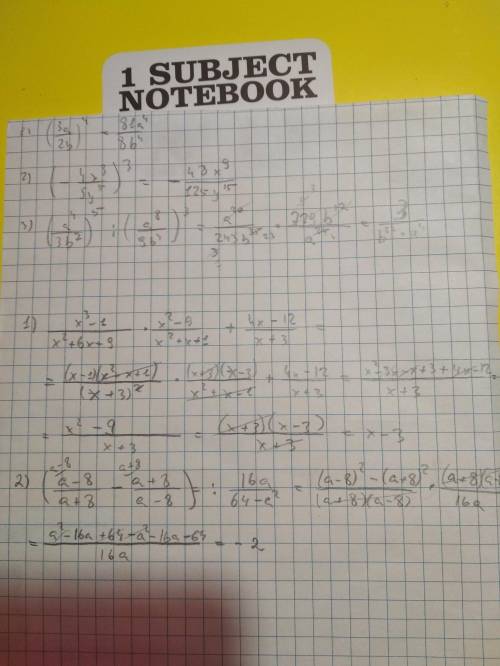 1 SUBJECT
NOTEBOOK
1. (3a/2b)^4 = 81a^4/8b^4
2) (- 4x^3/5y^5)^3 = - 48x^9/125y^15
3)
1) x^3-1/x^2+6x+9 · x^2-9/x^2+x+1 + 4x-12/x+3 =
= (x-1)(x^2+x+1)/(x+3)^2 · (x+3)(x-3)/x^2+x+1 + 4x-12/x+3 = x^2-3x-x+3+4x-12/x+3 =
= x^2-9/x+3 = (x+3)(x-3)/x+3 = x-3
2) (a-8/a+8 - a+8/a-8) : 16a/64-a^2 = (a-8)^2-(a+8)^2/(a+8)(a-8) · (a+8)(a-/16a
= a^2-16a+64-a^2-16a-64/16a = -2